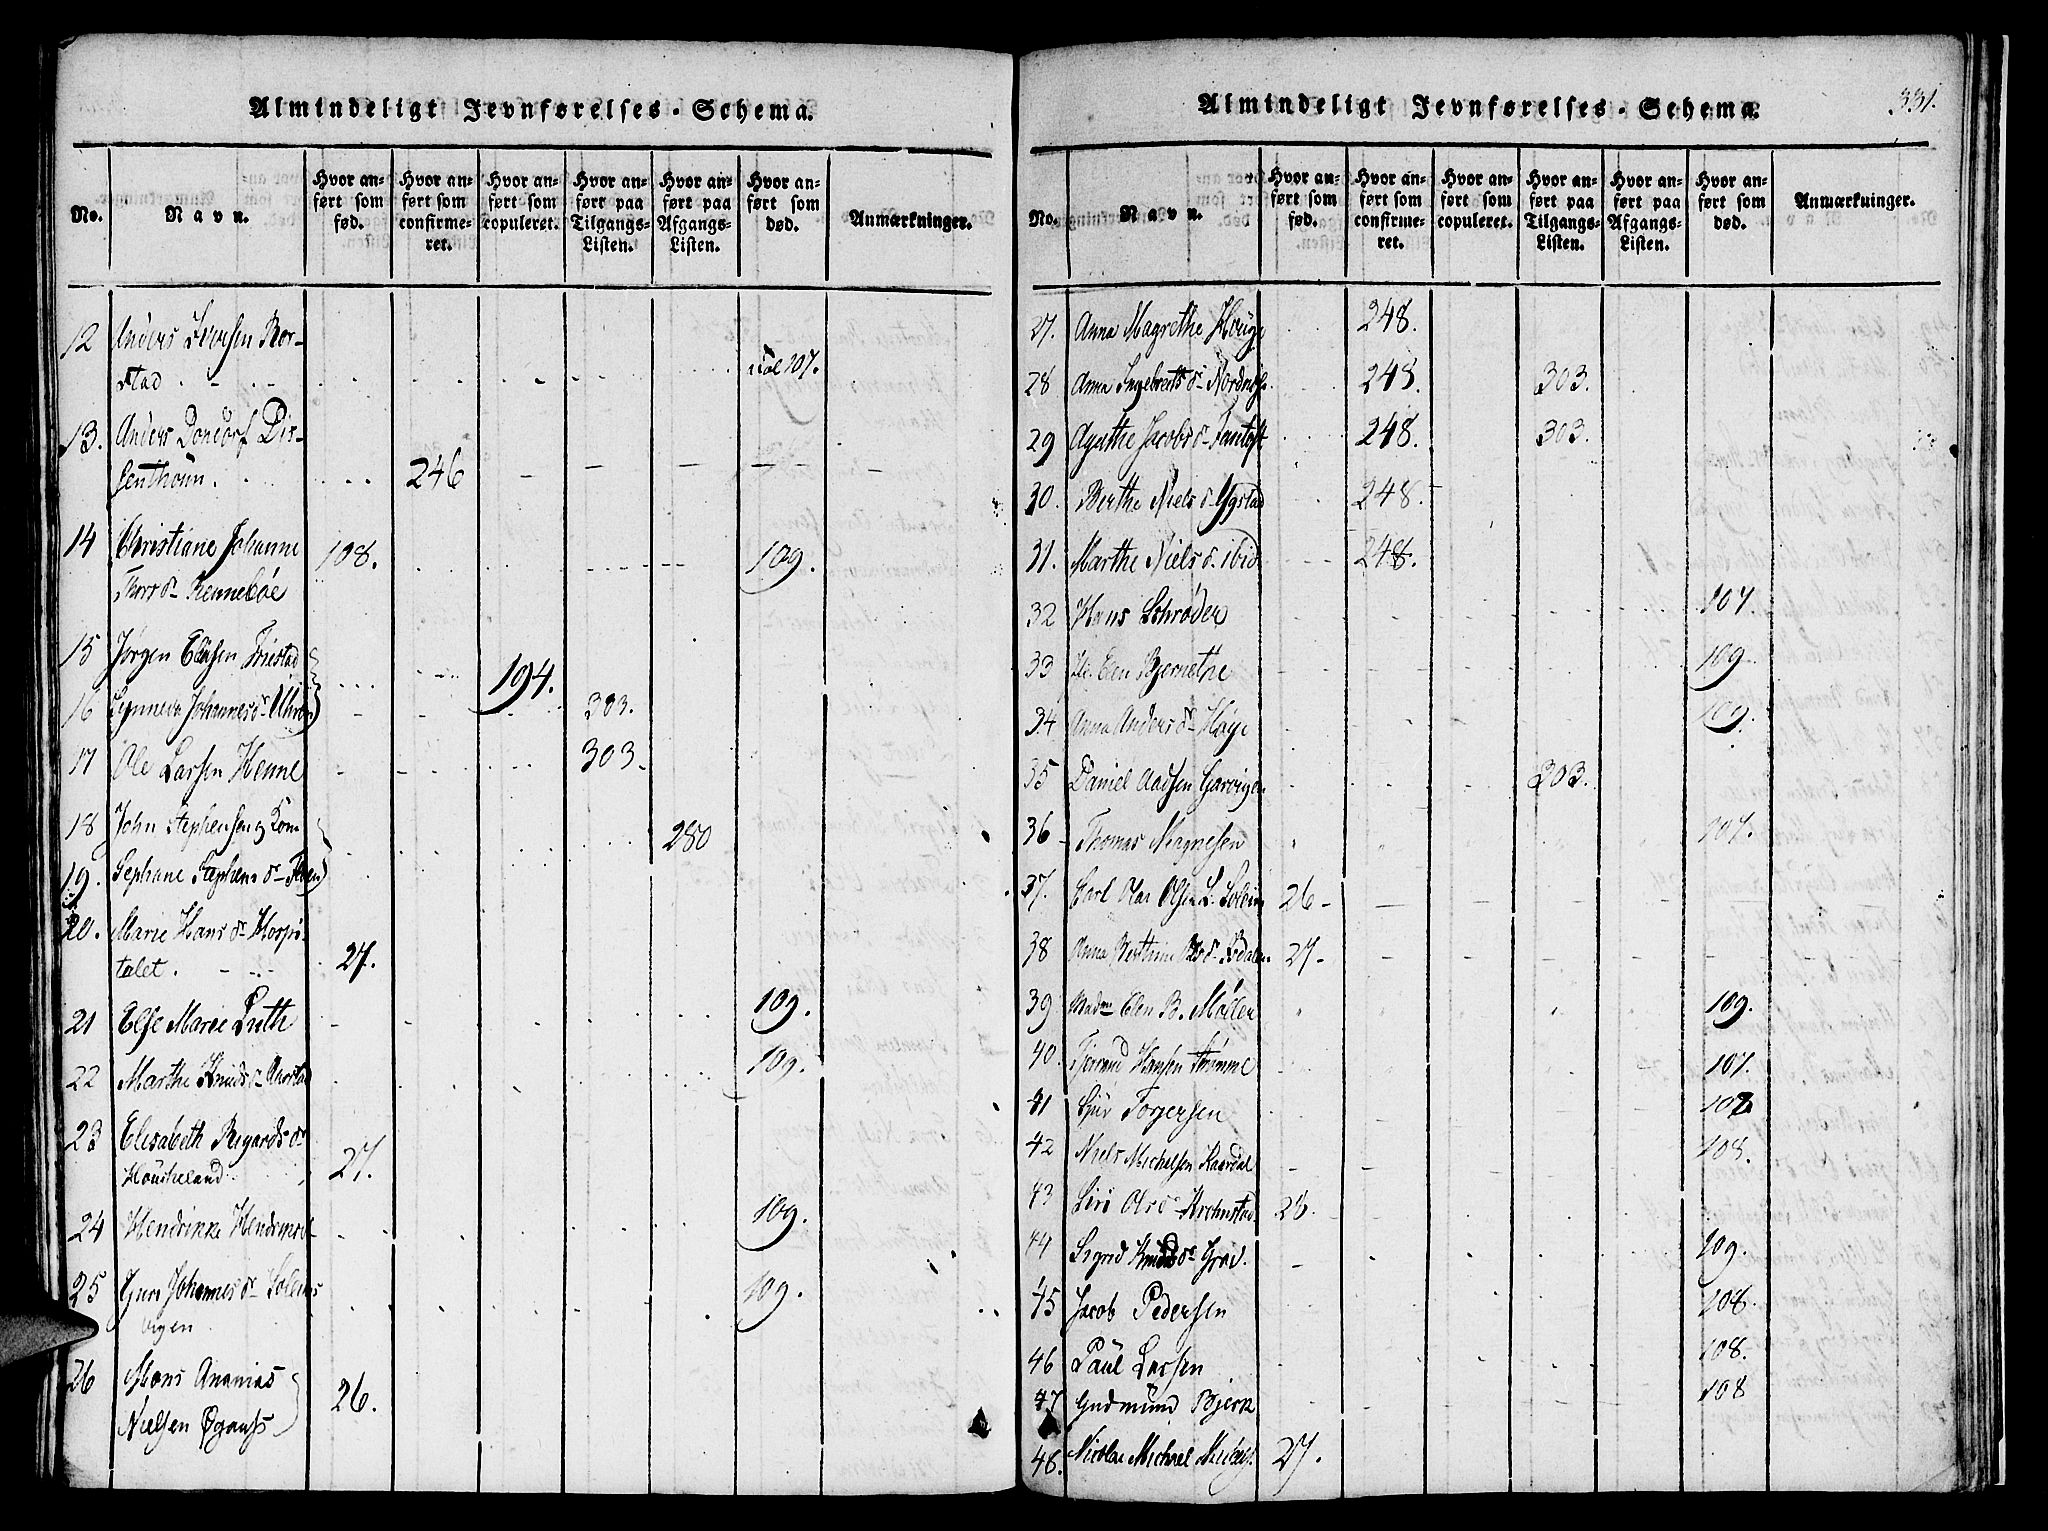 Almindeligt Jevnførelses-Schema.
No.
Navn.
Hvor anført som fød.
Hvor anført som confirmeret.
Hvor anført som copuleret.
Hvor anført paa Tilgangs-Listen.
Hvor anført paa Afgangs-Listen.
Hvor anført som død.
Anmærkninger.
12 Anders Iversen Bor-
stad . - . . . 107.
13. Anders Dondorf Dis-
senthoun. 246
14 Christiane Johanne 108. 109.
Thors d. Rennebøe
15 Jørgen Elisen Friestad 194.
16 Synneva Johannes d. 303.
17 Ole Larsen Henne 303.
18 John Stephensen og Kone 280
19. Sephane Stephens d.
20. Marie Hans d. Hospi-
talet. 27.
21 Else Marie Luth 109.
22 Marthe Knuds d. Aarstad 109.
23 Elisabeth Rigards d.
Houcheland 27.
24 Hendrikke 109.
25 Guri Johannes d. Solems- 109.
vigen
26 Mons Ananias 26.
Nielsen
Almindeligt Jevnførelses-Schema. 331.
No.
Navn.
Hvor anført som fød.
Hvor anført som confirmeret.
Hvor anført som copuleret.
Hvor anført paa Tilgangs-Listen.
Hvor anført paa Afgangs-Listen.
Hvor anført som død.
Anmærkninger.
27. Anna Magrethe Houge 248.
28 Anna Ingebreths d. 248. 303.
29 Agathe Jacobs d. Fantoft 248. 303.
30. Berthe Niels d. 248.
31. Marthe Niels d. ibid. 248.
32 Hans Schrøder 107.
33 Elen Bjernethe 109.
34 Anna Anders d. Høye 109.
35 Daniel Aadsen 303.
36 Thomas Magnesen 107.
37. Carl Olai Olsen 26
38 Anna Berthine 27
39 Madme Elen B. Møller 109.
40. Hansen Strømme 107.
41 Torgersen
42 Niels Michelsen 108.
43 Siri Ols d. 26.
44 Sigrid Knuds d. Grav. 109.
45 Jacob Pedersen 108.
46 Paul Larsen 108.
47 Gudmund Bjerk 108
48. Nicolai Michael 27.